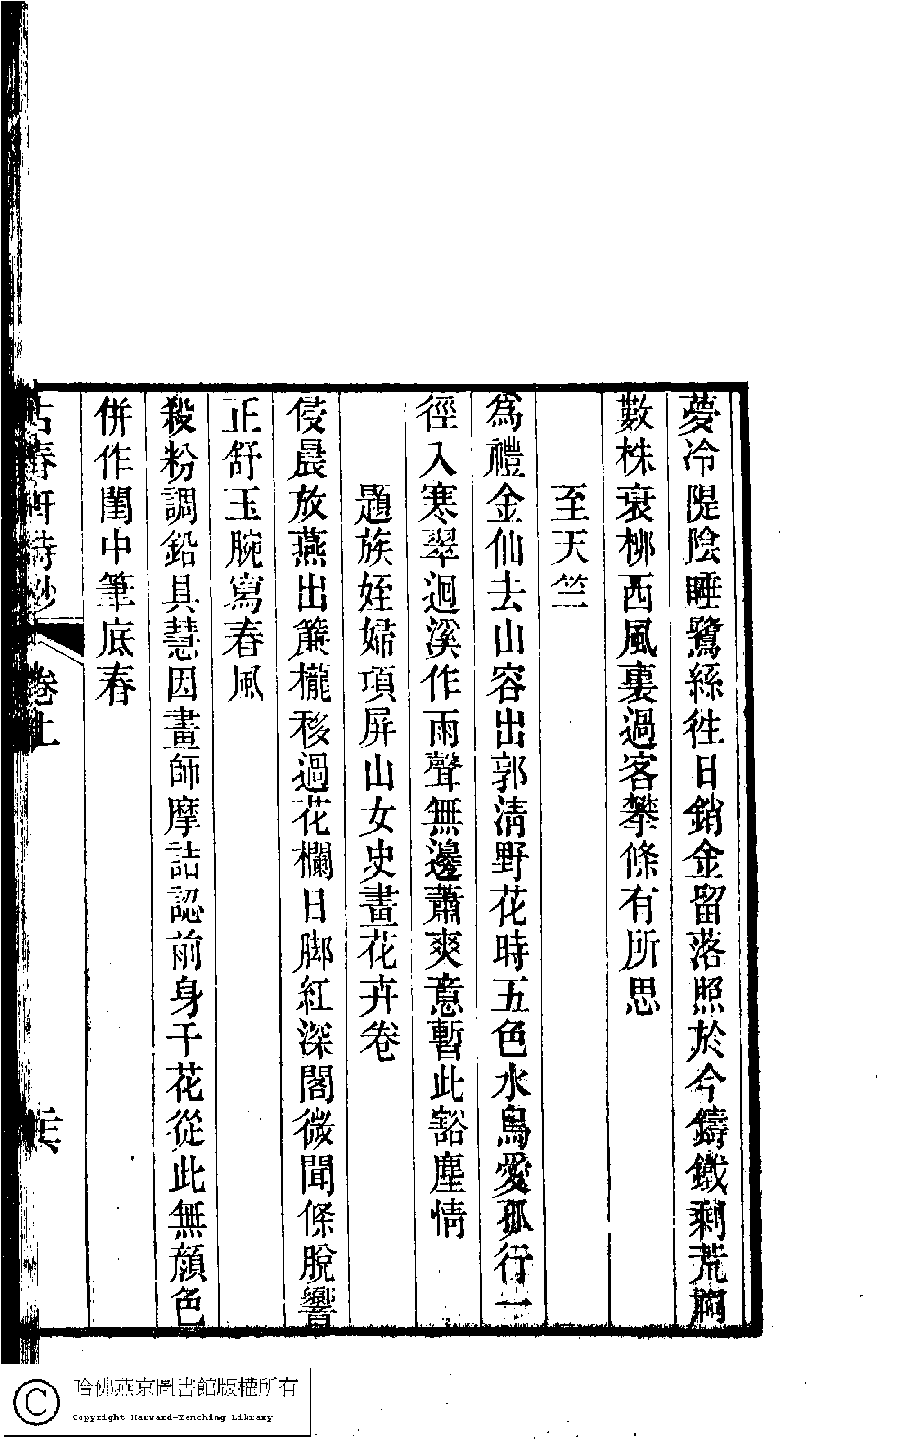 夢冷隄陰睡鷺絲徃日銷金留落照於今鑄鐵剩荒祠
數株衰柳西風裏過客攀條有所思
至天竺
爲禮金仙去山容出郭淸野花時五色水鳥愛孤行一
徑入寒翠迴溪作雨聲無邊蕭爽意暫此豁塵情
題族姪婦項屏山女史畫花卉卷
侵晨放燕出簾櫳移過花欄日脚紅深閣微聞條脫響
正舒玉腕寫春風
殺粉調鉛具慧因畫師摩詰認前身千花從此無顏色
併作閨中筆底春
古春軒詩鈔 卷上
哈佛燕京圖書館版權所有
Copyright Harvard-Yenching Library